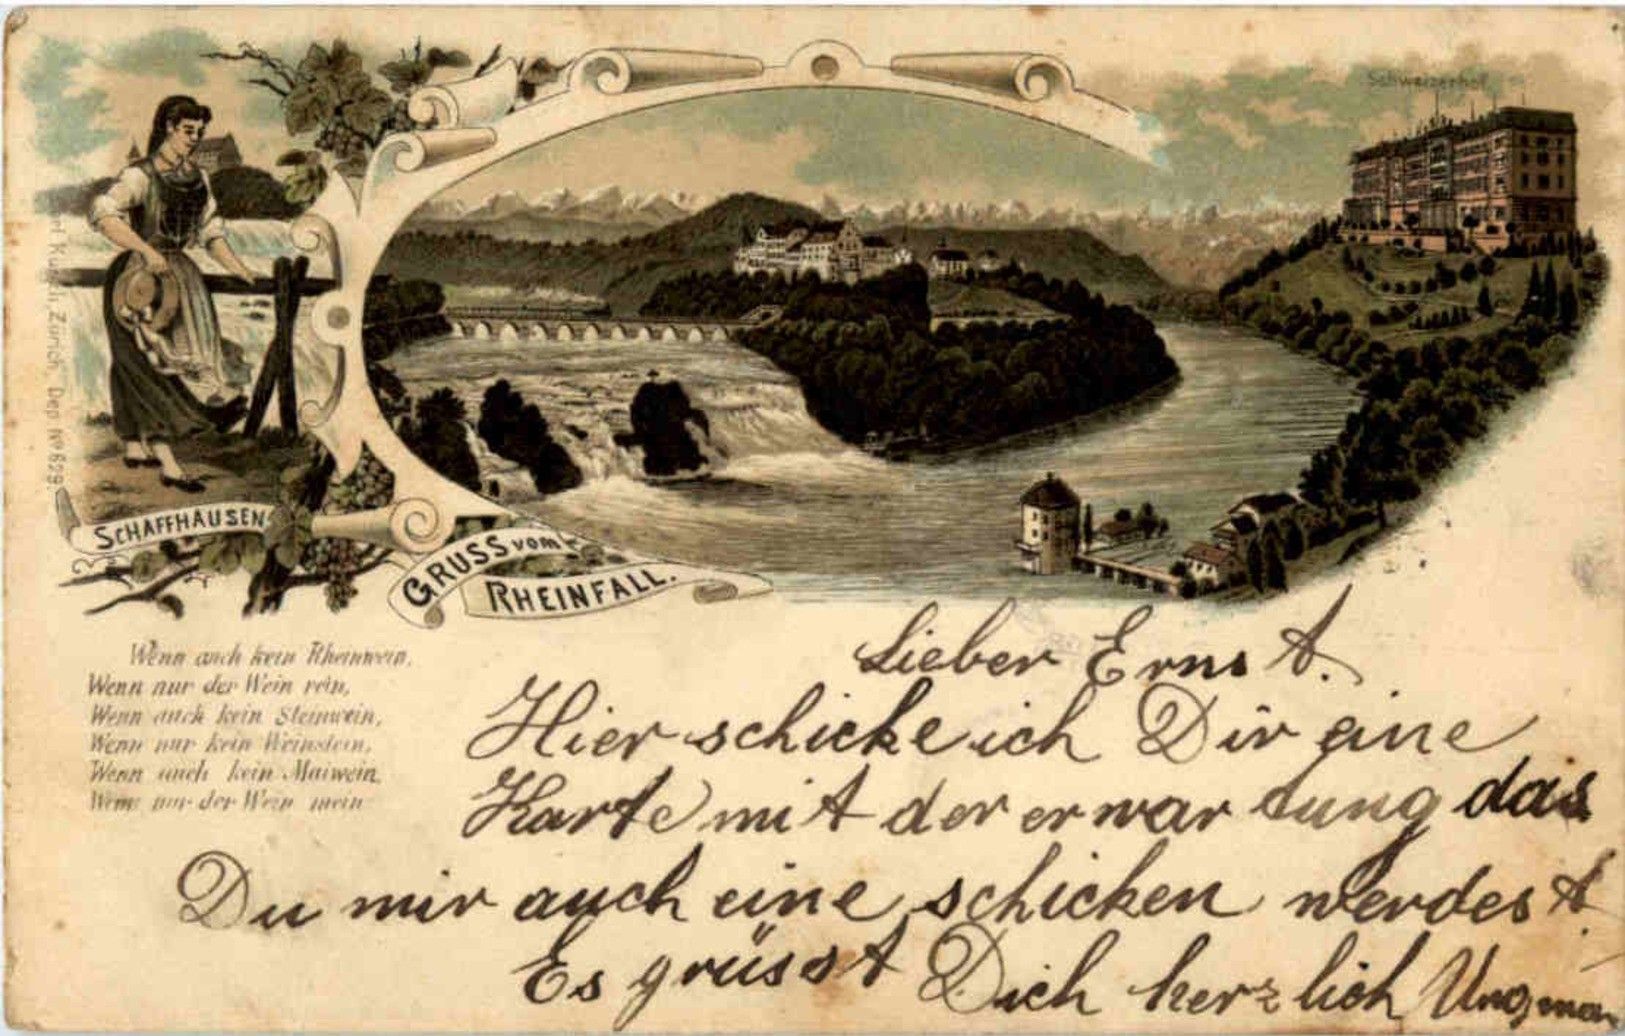 Schweizerhof
Zürich. Dep. No 629.
SCHAFFHAUSEN
GRUSS vom
RHEINFALL.
Wenn auch kein Rheinwein,
Wenn nur der Wein rein,
Wenn auch kein Steinwein,
Wenn nur kein Weinstein,
Wenn auch kein Maiwein,
Wenn nur der Wein mein
Lieber Ernst.
Hier schicke ich Dir eine
Karte mit der erwartung das
Du mir auch eine schicken werdest.
Es grüsst Dich herzlich